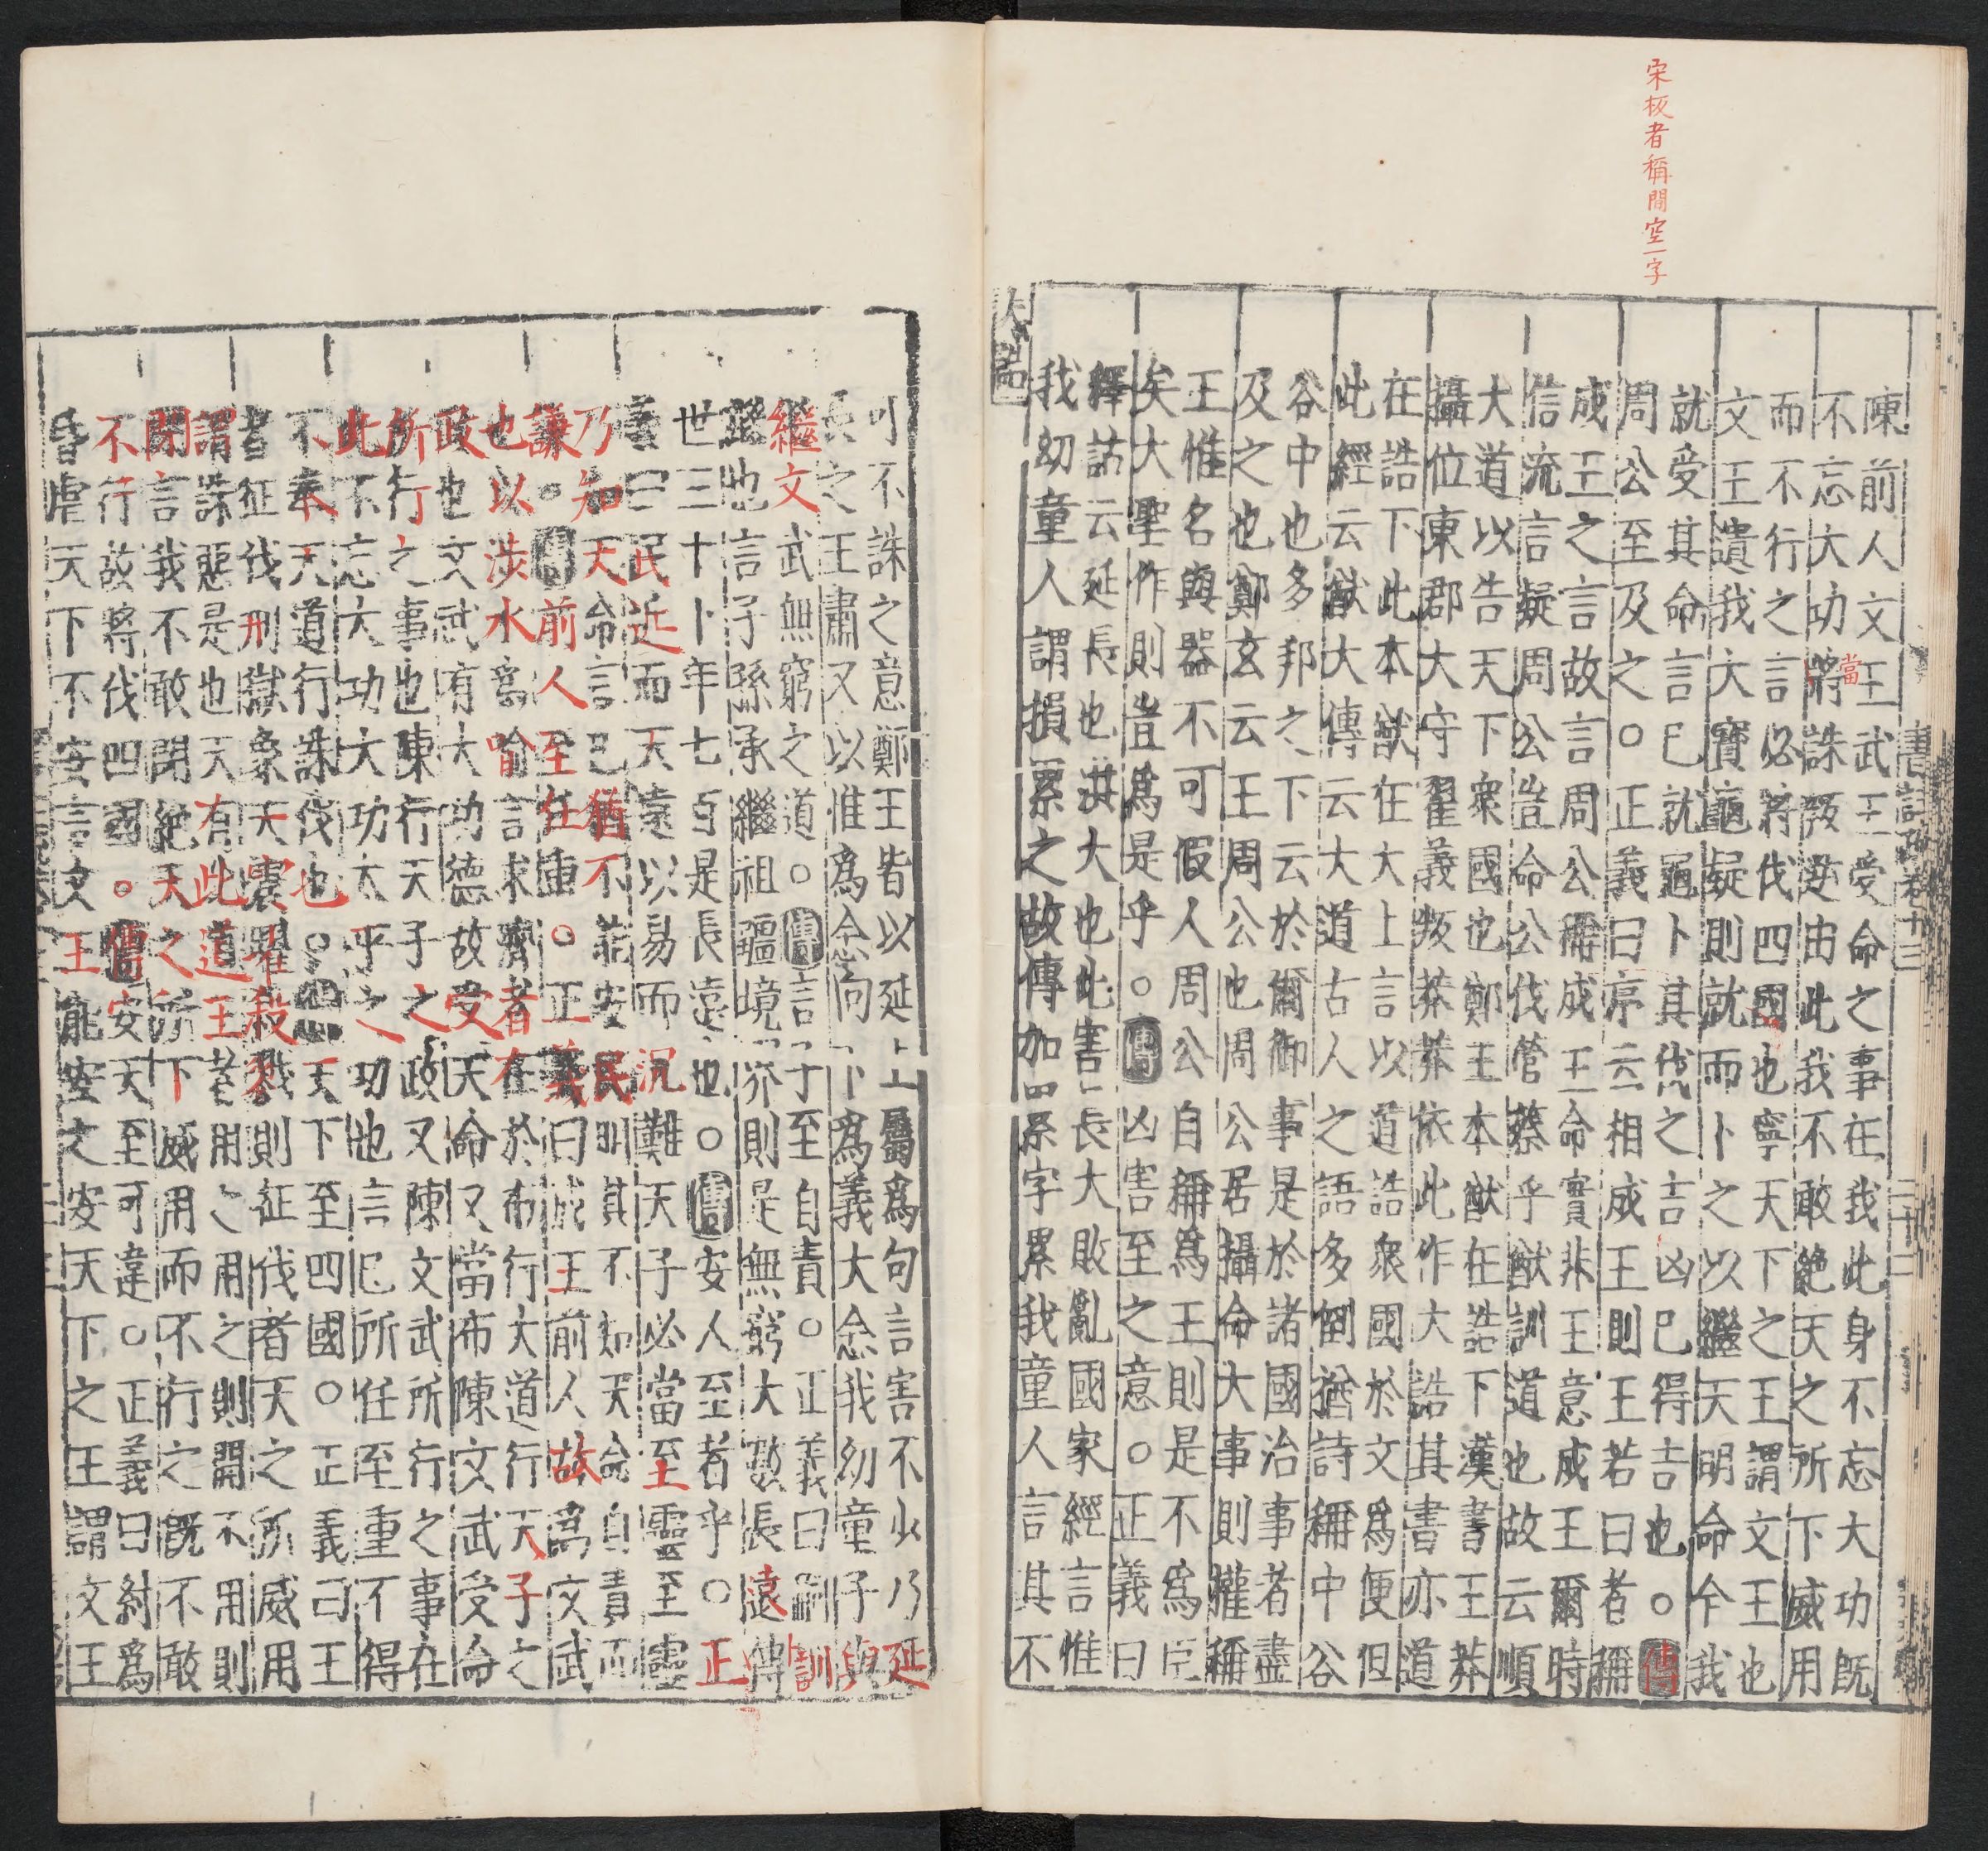 宋板者稱間空一字
書註疏卷十三
二十二
陳前人文王武王受命之事在我此身不忘大功既
不忘大功將誅叛逆由此我不敢絶天之所下威用
當
而不行之言必將伐四國也寧天下之王謂文王也
文王遺我大寶龜疑則就而卜之以繼天明命今我
就受其命言已就龜卜其伐之吉凶已得吉也○傳
周公至及之○正義曰序云相成王則王若曰者稱
成王之言故言周公稱成王命實非王意成王爾時
信流言疑周公豈命公伐管蔡乎猷訓道也故云順
大道以告天下衆國也鄭王本猷在誥下漢書王莽
攝位東郡大守翟義叛莽莽依此作大誥其書亦道
在誥下此本猷在大上言以道誥衆國於文爲便但
此經云猷大傳云大道古人之語多倒猶詩稱中谷
谷中也多邦之下云於爾御事是於諸國治事者盡
及之也鄭玄云王周公也周公居攝命大事則權稱
王惟名與器不可假人周公自稱爲王則是不爲臣
矣大聖作則豈爲是乎○傳凶害至之意○正義曰
釋詁云延長也洪大也此害長大敗亂國家經言惟
我幼童人謂損累之故傳加累字累我童人言其不
大誥
可不誅之意鄭王皆以延上屬爲句言害不少乃延
長之王肅又以惟爲念向下爲義大念我幼童子與
繼文武無窮之道○傳言子至自責○正義曰嗣訓
繼也言子孫承繼祖疆境界則是無窮大數長遠傳
世三十卜年七百是長遠也○傳安人至者乎○正
義曰民近而天遠以易而況難天子必當至靈至靈
乃知天命言已猶不能安民明其不知天命自責而
謙○傳前人至任重○正義曰成王前人故爲文武
也以涉水爲喻言求濟者在於布行大道行天子之
政也文武有大功德故受天命又當布陳文武受命
所行之事也陳行天子之政又陳文武所行之事在
此不忘大功大功太平之功也言已所任至重不得
不奉天道行誅伐也○傳天下至四國○正義曰王
者征伐刑獄象天震曜殺戮則征伐者天之所威用
謂誅惡是也天有此道王者用之用之則開不用則
閉言我不敢閉絶天之所下威用而不行之既不敢
不行故將伐四國○傳安天至可違○正義曰紂爲
昏虐天下不安言文王能安之安天下之王謂文王